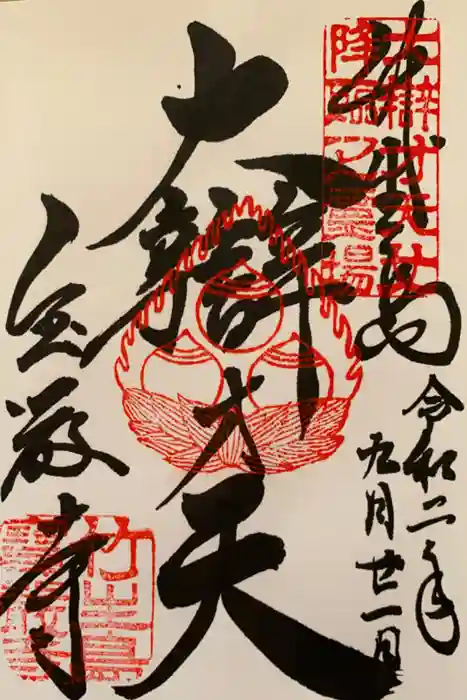 大辯才天女
降臨之霊場
竹生島
令和二年
九月廿一日
大辯才天
宝厳寺
竹生島